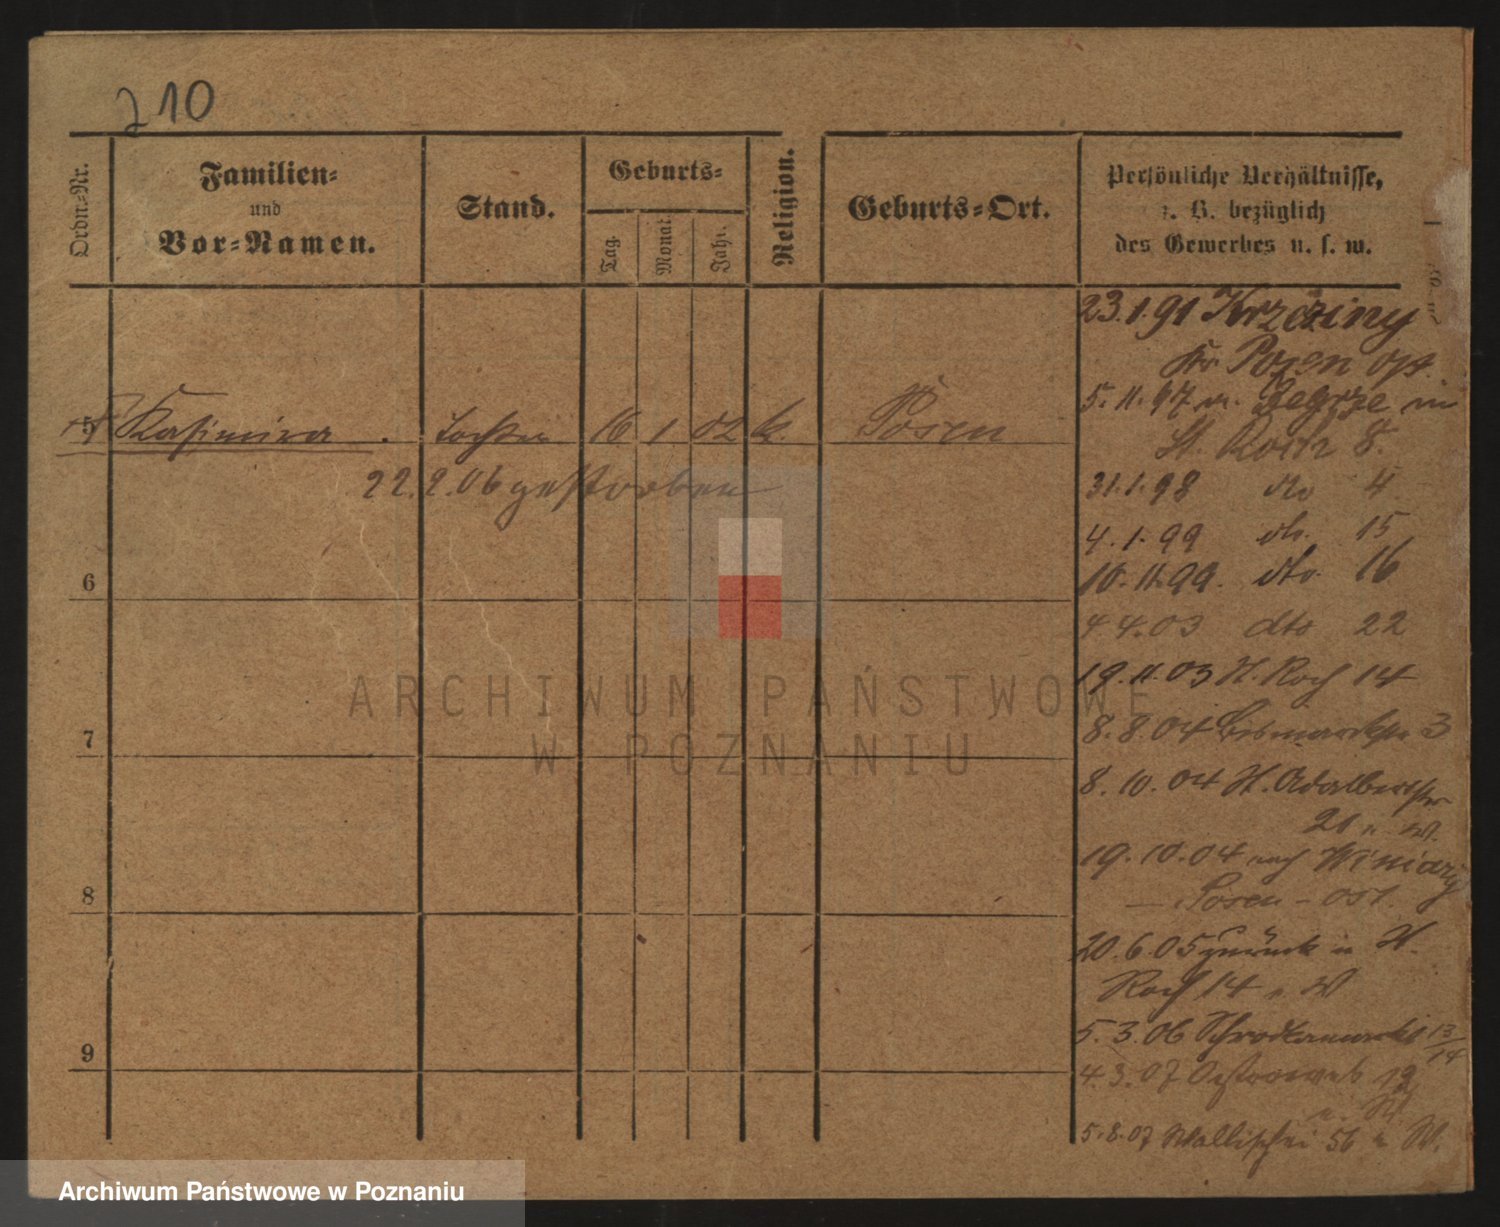 210
Ordn.-Nr.
Familien-
und
Vor-Namen.
Stand.
Geburts-
Tag.
Monat.
Jahr.
Religion.
Geburts-Ort.
Persönliche Verhältnisse,
z. B. bezüglich
des Gewerbes u. s. w.
23.1.91 Krzeziny
Kr Posen ost.
5. 11. 97 v. Zegrze in
St. Roch 8.
5 Kasimira Tochter 16 1 02 k. Posen
22.2.06 gestorben
31.1.98 dto 4
4.1.99 dto. 15
10.11.99. dto. 16
4 4.03 dto 22
19.11.03 St. Roch 14
8.8.04 Bismarckstr 3
8.10.04 St. Adalbertstr
21 n. W.
19.10.04 nach Winiary
— Posen - ost.
20.6.05 zurück n St.
Roch 14 n W
5.3.06 Schrodkamarkt 13/14
4.3.07 Ostrowek 12
n. W
5.8.07 Wallischei 56 n W.
6
7
8
9
ARCHIWUM PAŃSTWOWE
W POZNANIU
Archiwum Państwowe w Poznaniu